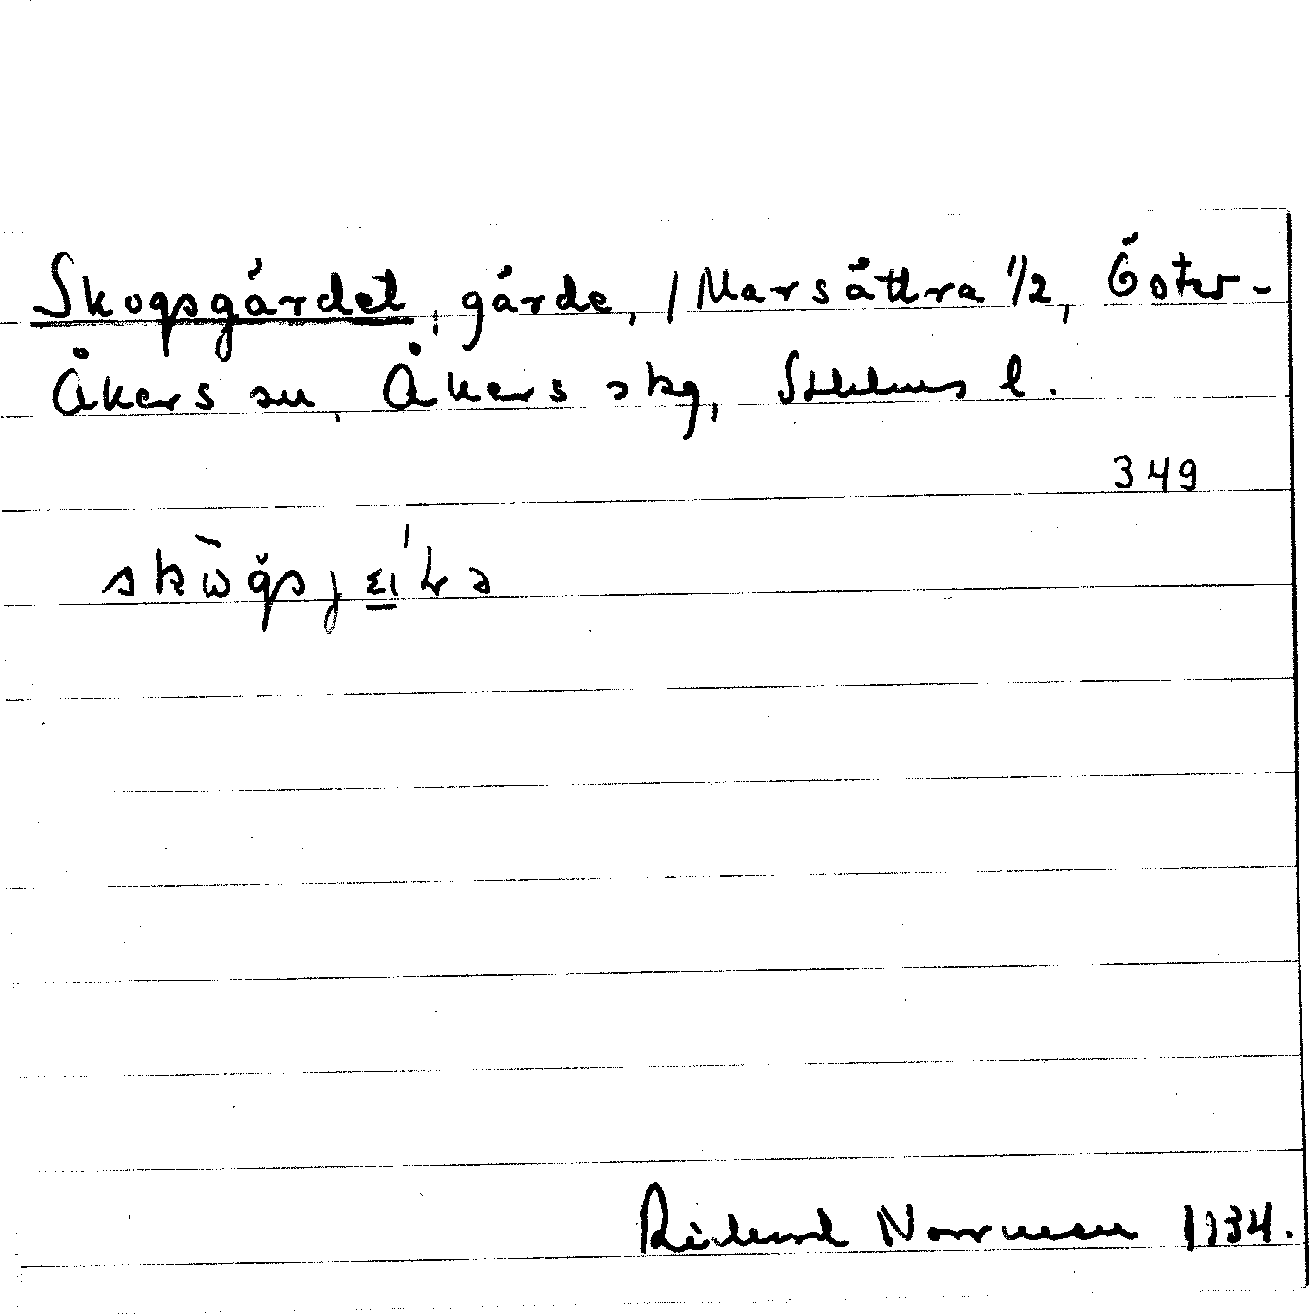 Skogsgärdet, gärde, / Marsättra 1/2, Öster-
Åkers sn, Åkers skg, Sthlms l.
349
Rickard Norrman 1934.